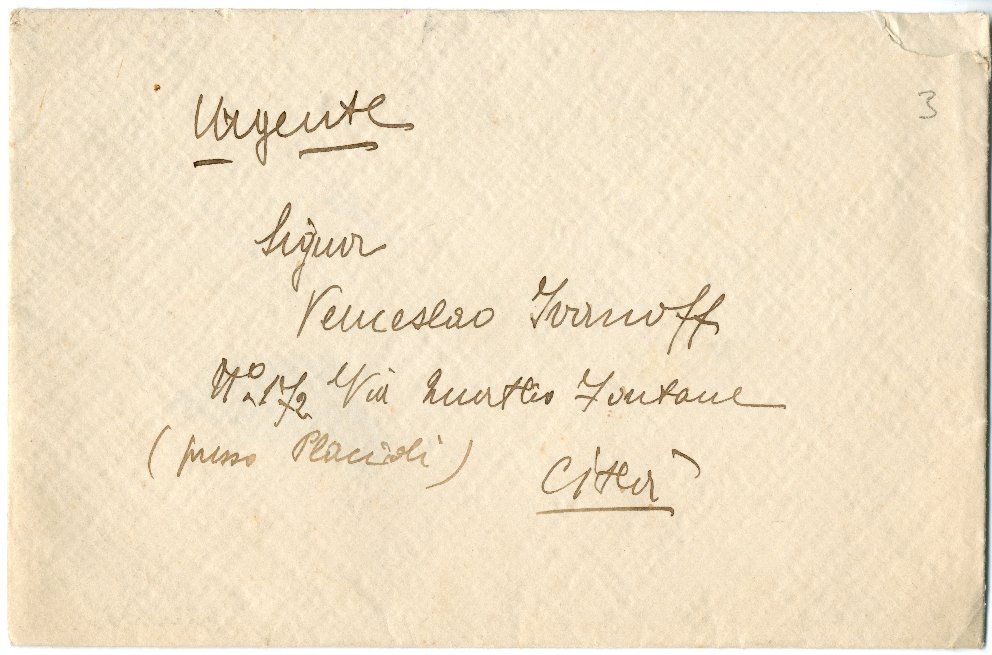 Urgente
3
Signor
Venceslao Ivanoff
N° 172 Via Quattro Fontane
(presso Placidi)
Città